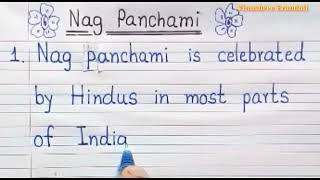 Nag Panchami
1. Nag panchami is celebrated
by Hindus in most parts
of India